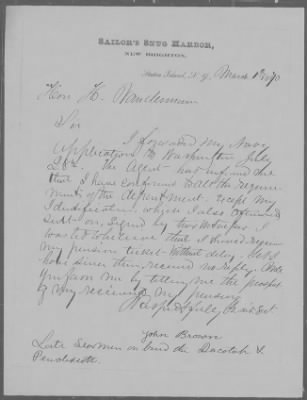 SAILOR'S SNUG HARBOR,
NEW BRIGHTON,
Staten Island, N. Y. March 1st 1890
Hon H.
Sir
I forward my Navy
Application to Washington July
28th the Agent has informed me
that I have conformed to All the require
ments of the department except my
Identification, which I also obtained
sent on, Signed by two
was to believe that I should
my pension ticket without delay. But I
have since then received no reply. Will
you favor me by telling me the prospect
of my receiving my pension
Respectfully
John Brown
Late Seaman on board the Dacotah &
Pensacola